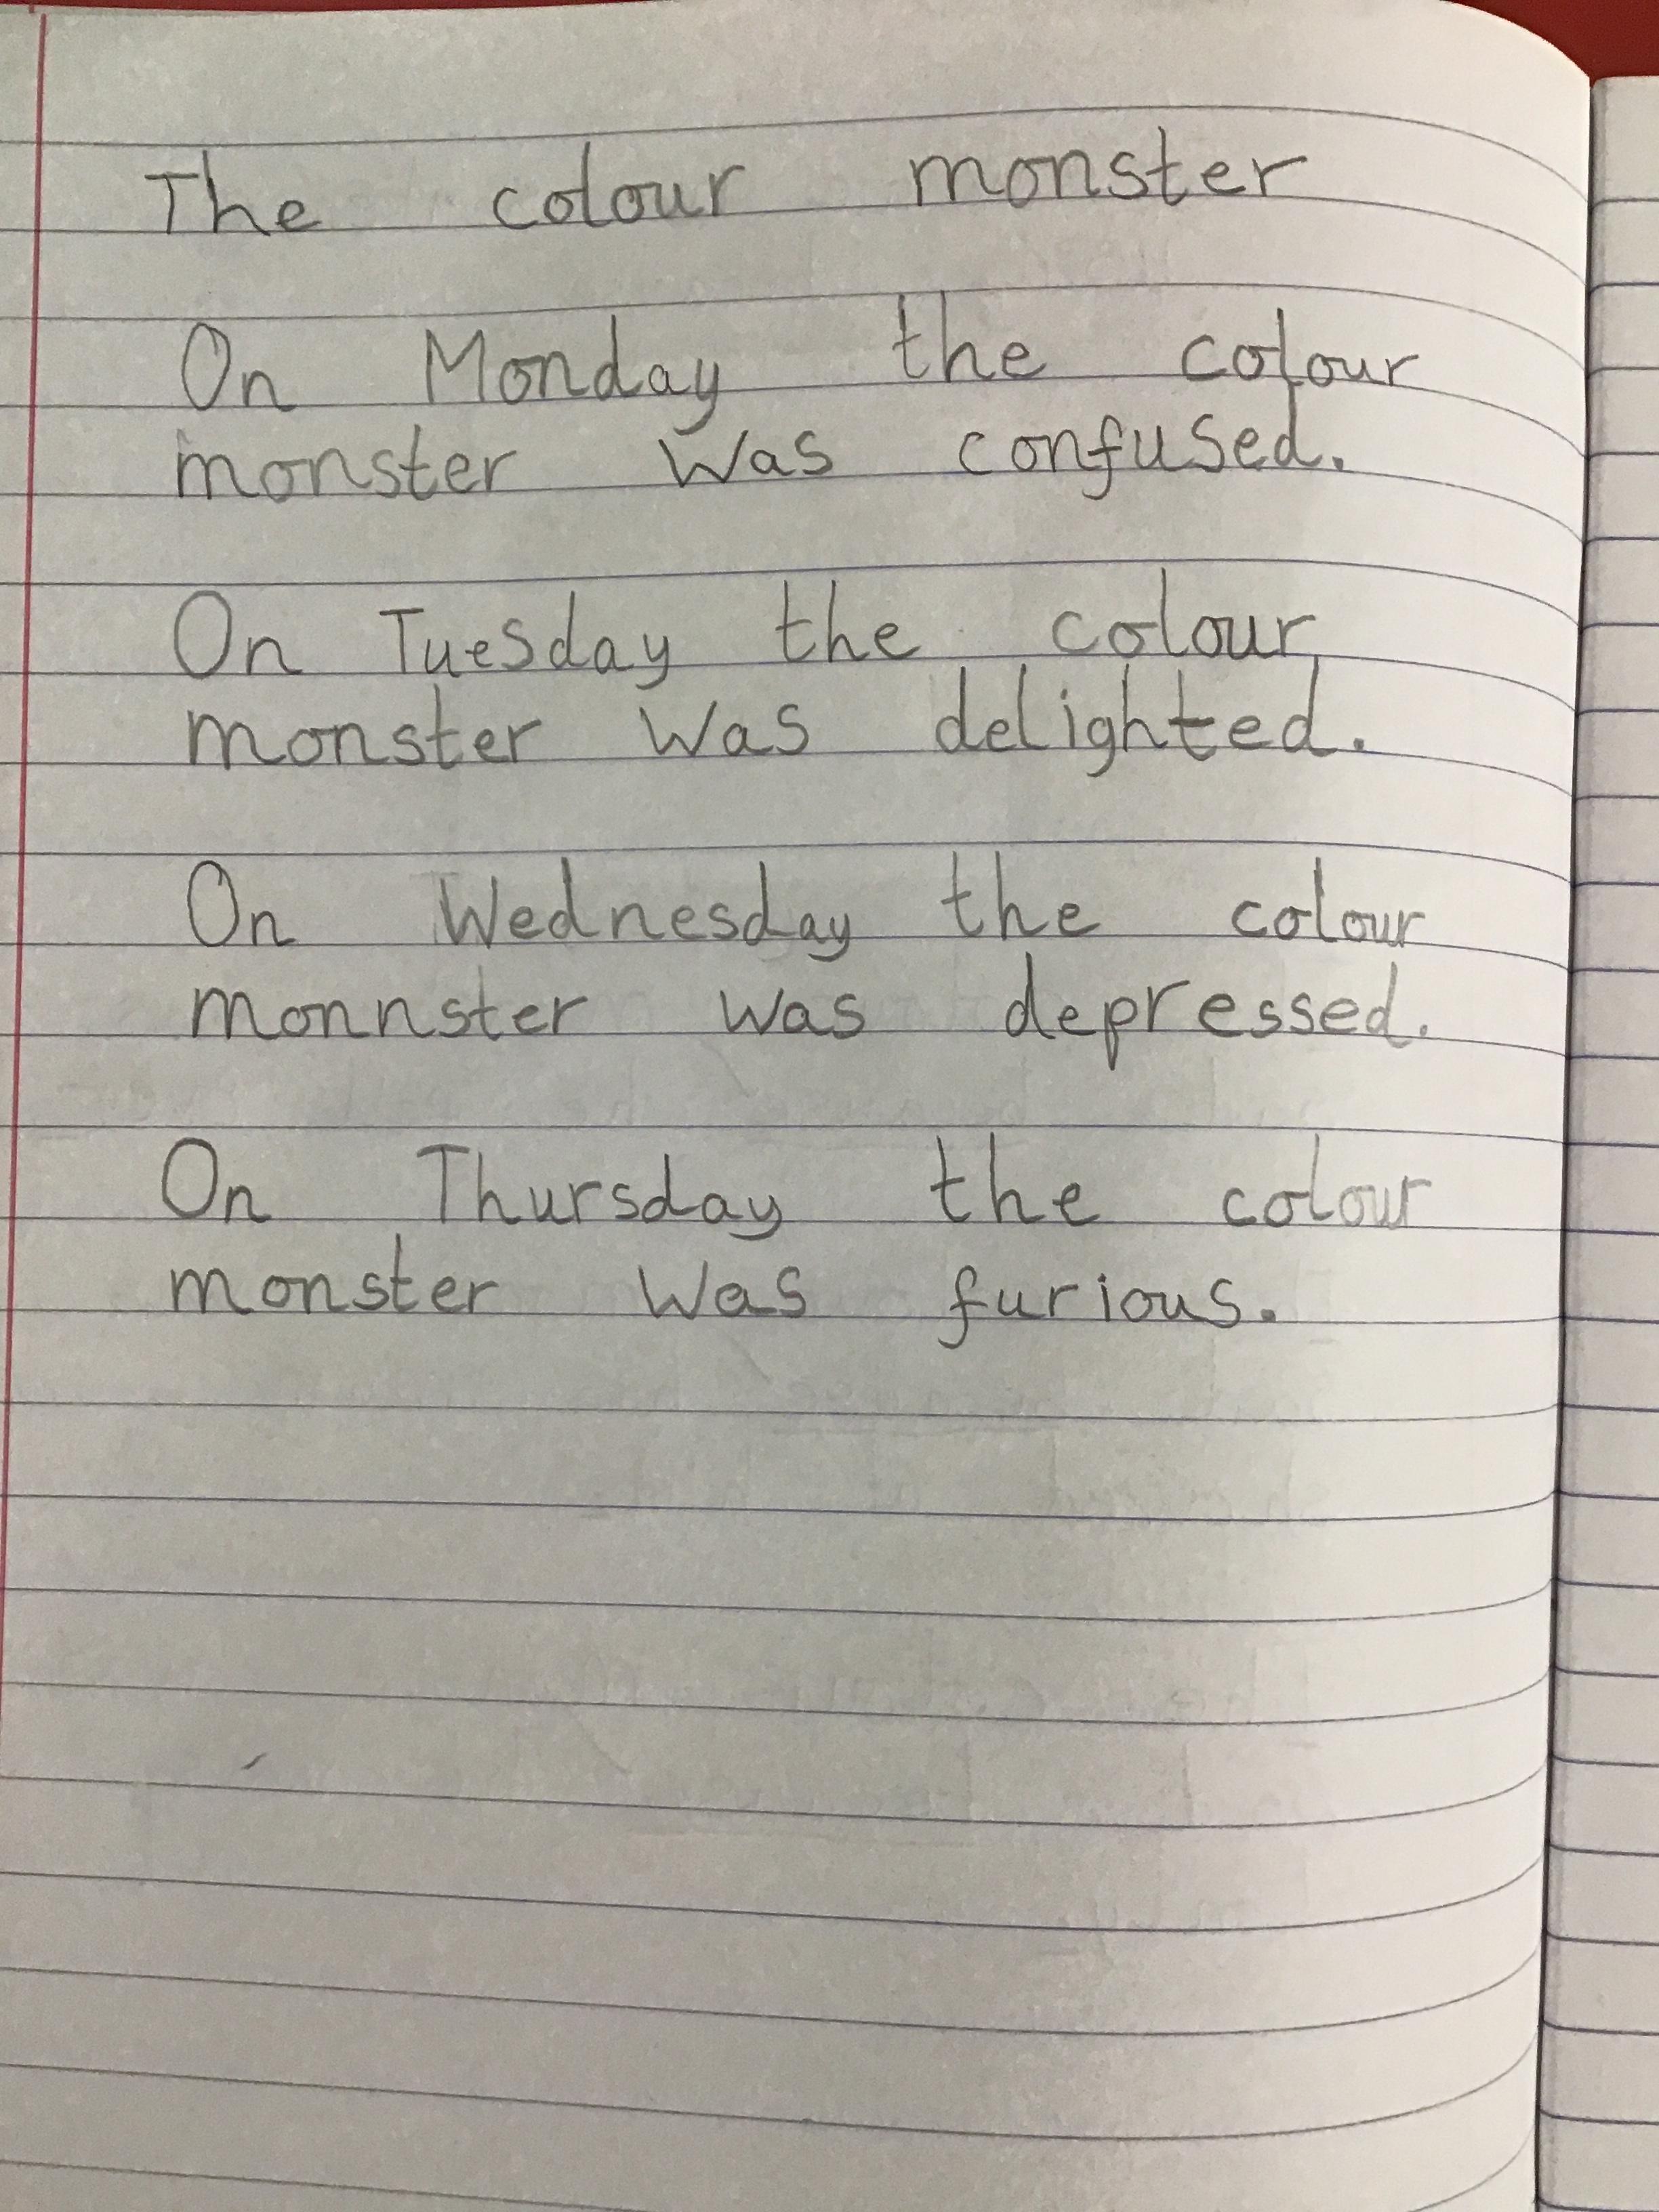 The colour monster
On Monday the colour
monster was confused.
On Tuesday the colour
monster was delighted.
On Wednesday the colour
monnster was depressed.
On Thursday the colour
monster was furious.